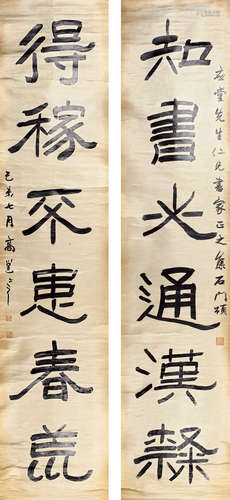 知書必通漢隸
堂先生仁兄書家正之集石門頌
得稼不患春荒
七月高邕